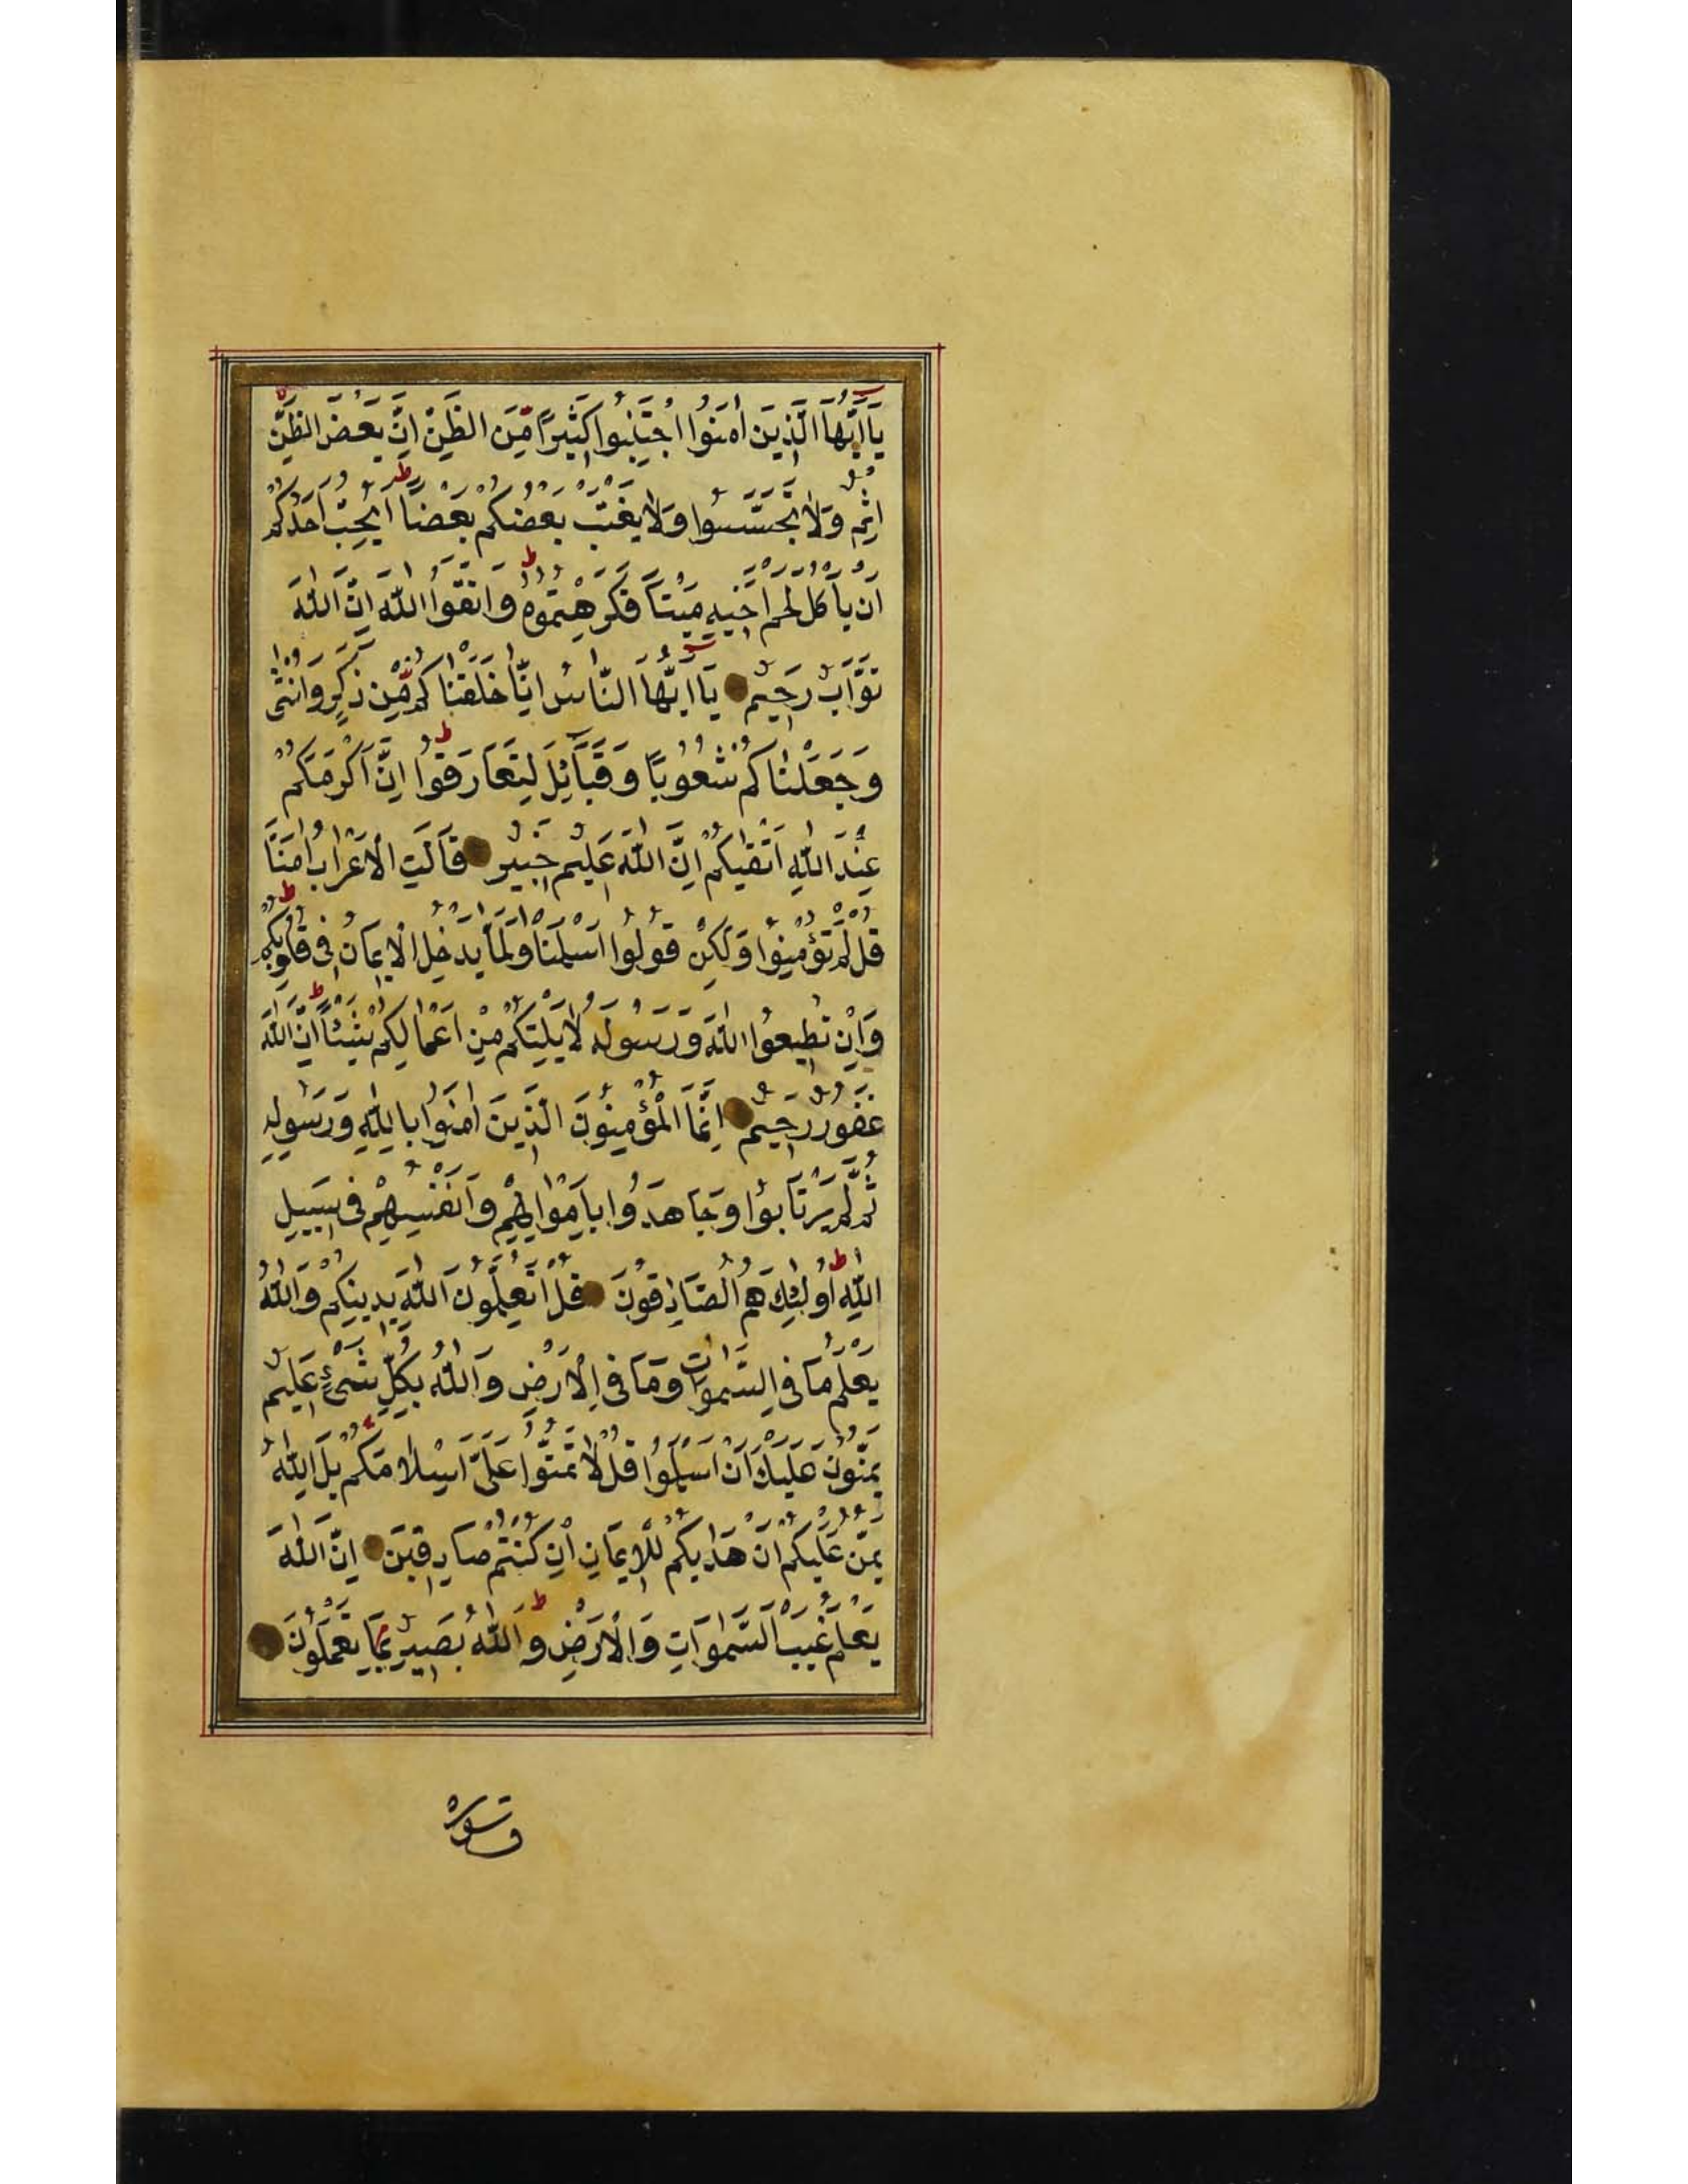 يَا اَيُّهَا الَّذِينَ اٰمَنُوا اجْتَنِبُوا كَثِيرًا مِّنَ الظَّنِّ اِنَّ بَعْضَ الظَّنِّ
اِثْمٌ وَلَا تَجَسَّسُوا وَلَا يَغْتَبْ بَعْضُكُمْ بَعْضًا اَيُحِبُّ اَحَدُكُمْ
اَنْ يَأْكُلَ لَحْمَ اَخِيهِ مَيْتًا فَكَرِهْتُمُوهُ وَاتَّقُوا اللّٰهَ اِنَّ اللّٰهَ
تَوَّابٌ رَحِيمٌ يَا اَيُّهَا النَّاسُ اِنَّا خَلَقْنَاكُمْ مِّنْ ذَكَرٍ وَاُنْثٰى
وَجَعَلْنَاكُمْ شُعُوبًا وَقَبَآئِلَ لِتَعَارَفُوا اِنَّ اَكْرَمَكُمْ
عِنْدَ اللّٰهِ اَتْقٰيكُمْ اِنَّ اللّٰهَ عَلِيمٌ خَبِيرٌ قَالَتِ الْاَعْرَابُ اٰمَنَّا
قُلْ لَمْ تُؤْمِنُوا وَلٰكِنْ قُولُوا اَسْلَمْنَا وَلَمَّا يَدْخُلِ الْاِيمَانُ فِى قُلُوبِكُمْ
وَاِنْ تُطِيعُوا اللّٰهَ وَرَسُولَهُ لَا يَلِتْكُمْ مِنْ اَعْمَالِكُمْ شَيْئًا اِنَّ اللّٰهَ
غَفُورٌ رَحِيمٌ اِنَّمَا الْمُؤْمِنُونَ الَّذِينَ اٰمَنُوا بِاللّٰهِ وَرَسُولِهِ
ثُمَّ لَمْ يَرْتَابُوا وَجَاهَدُوا بِاَمْوَالِهِمْ وَاَنْفُسِهِمْ فِى سَبِيلِ
اللّٰهِ اُولٰئِكَ هُمُ الصَّادِقُونَ قُلْ اَتُعَلِّمُونَ اللّٰهَ بِدِينِكُمْ وَاللّٰهُ
يَعْلَمُ مَا فِى السَّمٰوَاتِ وَمَا فِى الْاَرْضِ وَاللّٰهُ بِكُلِّ شَىْءٍ عَلِيمٌ
يَمُنُّونَ عَلَيْكَ اَنْ اَسْلَمُوا قُلْ لَا تَمُنُّوا عَلَىَّ اِسْلَامَكُمْ بَلِ اللّٰهُ
يَمُنُّ عَلَيْكُمْ اَنْ هَدٰيكُمْ لِلْاِيمَانِ اِنْ كُنْتُمْ صَادِقِينَ اِنَّ اللّٰهَ
يَعْلَمُ غَيْبَ السَّمٰوَاتِ وَالْاَرْضِ وَاللّٰهُ بَصِيرٌ بِمَا تَعْمَلُونَ
سورة ق